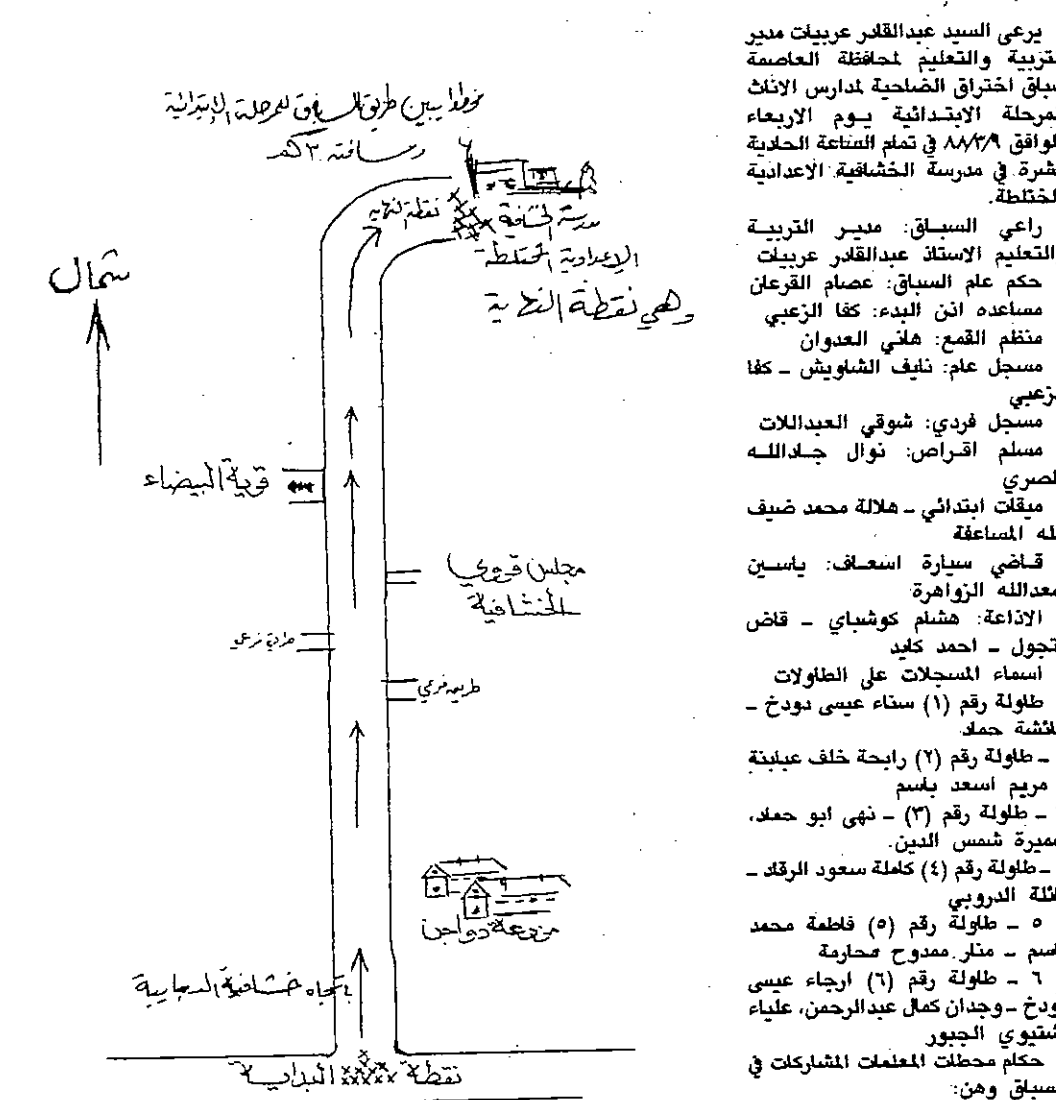 يرعى السيد عبدالقادر عربيات مدير
التربية والتعليم لمحافظة العاصمة
سباق اختراق الضاحية لمدارس الاناث
للمرحلة الابتدائية يوم الاربعاء
الموافق ٨٨/٣/٩ في تمام الساعة الحادية
عشرة في مدرسة الخشافية الاعدادية
المختلطة.
راعي السباق: مدير التربية
والتعليم الاستاذ عبدالقادر عربيات
حكم عام السباق: عصام القرعان
مساعده اذن البدء: كفا الزعبي
منظم القمع: هاني العدوان
مسجل عام: نايف الشاويش ـ كفا
الزعبي
مسجل فردي: شوقي العبداللات
مسلم اقراص: نوال جادالله
المصري
ميقات ابتدائي ـ هلالة محمد ضيف
الله المساعفة
قاضي سيارة اسعاف: ياسين
سعدالله الزواهرة
الاذاعة: هشام كوشباي ـ قاض
متجول ـ احمد كايد
اسماء المسجلات على الطاولات
طاولة رقم (١) سناء عيسى دودخ ـ
عائشة حماد
ـ طاولة رقم (٢) رابحة خلف عبابنة
مريم اسعد باسم
ـ طاولة رقم (٣) ـ نهى ابو حماد،
سميرة شمس الدين.
ـ طاولة رقم (٤) كاملة سعود الرقاد ـ
الدروبي
٥ ـ طاولة رقم (٥) فاطمة محمد
قاسم ـ منار ممدوح محارمة
٦ ـ طاولة رقم (٦) ارجاء عيسى
دودخ ـ وجدان كمال عبدالرحمن، علياء
شتيوي الجبور
حكام محطات المعلمات المشاركات في
السباق وهن:
مخطط يبين طريق السباق للمرحلة الابتدائية
ومسافته ٣ كم
شمال
نقطة النهاية
مدرسة الخشافية
الاعدادية المختلطة
وهي نقطة النهاية
قرية البيضاء
مجلس قروي
الخشافية
فرعي
طريق فرعي
مزرعة دواجن
باتجاه خشافية الدبايبة
نقطة البداية